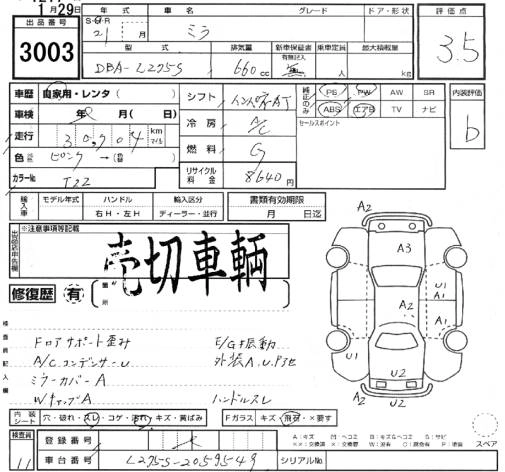 1月29日
出品番号
3003
年式
車名
グレード
ドア・形状
評価点
S・H・R
21 月
ミラ
3.5
型式
排気量
新車保証書
有無記入
乗車定員
最大積載量
DBA-L275S
660 cc
人
kg
車歴 自家用・レンタ( )
車検 年 月( 日)
走行 30,904 km マイル
色 ピンク →(替)
カラーNo T22
シフト インパネAT
冷房 A/C
燃料 G
リサイクル料金 8640円
純正のみ
PS PW AW SR
ABS エアB TV ナビ
セールスポイント
内装評価
b
輸入車
モデル年式
ハンドル
輸入区分
右H・左H
ディーラー・並行
書類有効期限
月 日迄
※注意事項等記載
売切車輌
修復歴 有
箇所
検査員記入欄
フロアサポート歪み
A/Cコンデンサーu
ミラーカバーA
WキャップA
E/G振動
外装A.U.P3セ
ハンドルスレ
A2
A3
U1
A1
A2
A1
U1
U2
U2
A2
内装シート
穴・破れ・スレ・コゲ・汚れ・キズ・黄ばみ
Fガラス
キズ・飛石・×要す
検査員
11
登録番号
車台番号
L275S-2059549
シリアルNo
A:キズ M:ヘコミ B:キズ&ヘコミ S:サビ
××:交換済 ×:要交換 W:波有 C:腐食有 P:塗装
スペア